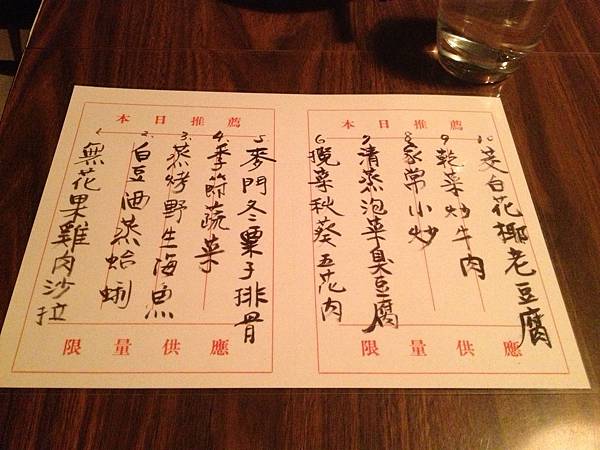 本日推薦
1. 無花果雞肉沙拉
2. 白豆酒蒸蛤蜊
3. 蒸烤野生海魚
4. 季節蔬菜
5. 麥門冬栗子排骨
限量供應
本日推薦
6. 攬菜秋葵五花肉
7. 清蒸泡菜臭豆腐
8. 家常小炒
9. 乾菜炒牛肉
10. 茭白花椰老豆腐
限量供應